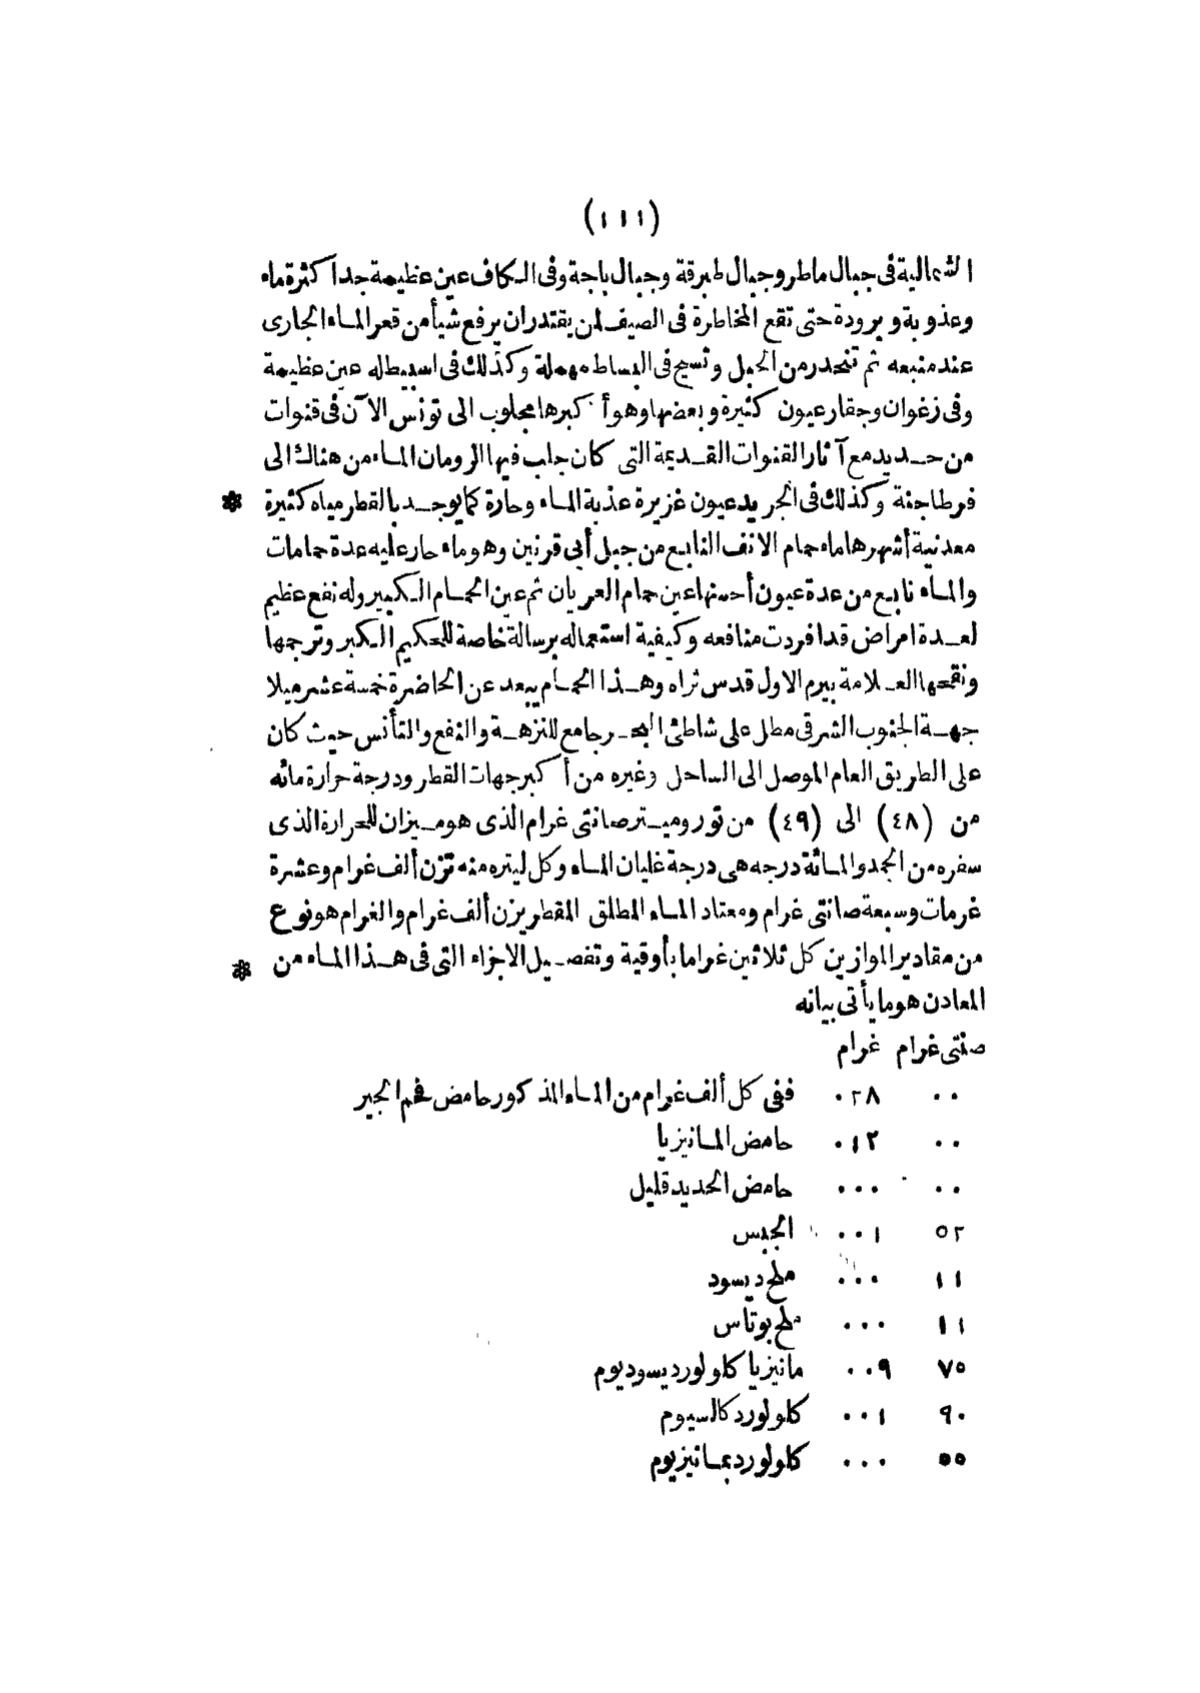 (١١١)
الشمالية فى جبال ماطر وجبال طبرقة وجبال باجة وفى الكاف عين عظيمة جدا كثرة ماء
وعذوبة وبرودة حتى تقع المخاطرة فى الصيف لمن يقتدر ان يرفع شيأ من قعر الماء الجارى
عند منبعه ثم تنحدر من الجبل وتسيح فى البساط مهملة وكذلك فى اسبيطله عين عظيمة
وفى زغوان وجقار عيون كثيرة وبعضها وهو أكبرها مجلوب الى تونس الآن فى قنوات
من حديد مع آثار القنوات القديمة التى كان جلب فيها الرومان الماء من هناك الى
قرطاجنة وكذلك فى الجريد عيون غزيرة عذبة الماء وحارة كما يوجد بالقطر مياه كثيرة *
معدنية أشهرها ماء حمام الانف النابع من جبل أبى قرنين وهو ماء حار عليه عدة حمامات
والماء نابع من عدة عيون أحسنها عين حمام العريان ثم عين الحمام الكبير وله نفع عظيم
لعدة امراض قد افردت منافعه وكيفية استعماله برسالة خاصة للحكيم الكبر وترجمها
ونقحها العلامة بيرم الاول قدس ثراه وهذا الحمام يبعد عن الحاضرة خمسة عشر ميلا
جهة الجنوب الشرقى مطل على شاطئ البحر جامع للنزهة والنفع والتأنس حيث كان
على الطريق العام الموصل الى الساحل وغيره من أكبر جهات القطر ودرجة حرارة مائه
من (٤٨) الى (٤٩) من توروميتر صانتى غرام الذى هو ميزان للحرارة الذى
سفره من الجمد والمائة درجه هى درجة غليان الماء وكل ليتره منه تزن ألف غرام وعشرة
غرمات وسبعة صانتى غرام ومعتاد الماء المطلق المقطر يزن ألف غرام والغرام هو نوع
من مقادير الموازين كل ثلاثين غراما بأوقية وتفصيل الاجزاء التى فى هذا الماء من *
المعادن هو ما يأتى بيانه
صنتى غرام غرام
٠٠ ٠٢٨ ففى كل ألف غرام من الماء المذكور حامض فحم الجير
٠٠ ٠١٢ حامض المانيزيا
٠٠ ٠٠٠ حامض الحديد قليل
٥٢ ٠٠١ الجبس
١١ ٠٠٠ ملح ديسود
١١ ٠٠٠ ملح بوتاس
٧٥ ٠٠٩ مانيزيا كلولورديسوديوم
٩٠ ٠٠١ كلولورد كالسيوم
٥٥ ٠٠٠ كلولورد بمانيزيوم